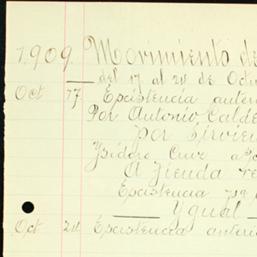 1.909. Movimiento de
del 17 al 24 de Octu
Oct 17 Epcistencia anteri
Por Antonio Calde
por Sirvien
Ysidoro Cruz a/c
A Tienda re
Epcistencia
Ygual
Oct 24 Epcistencia anteri